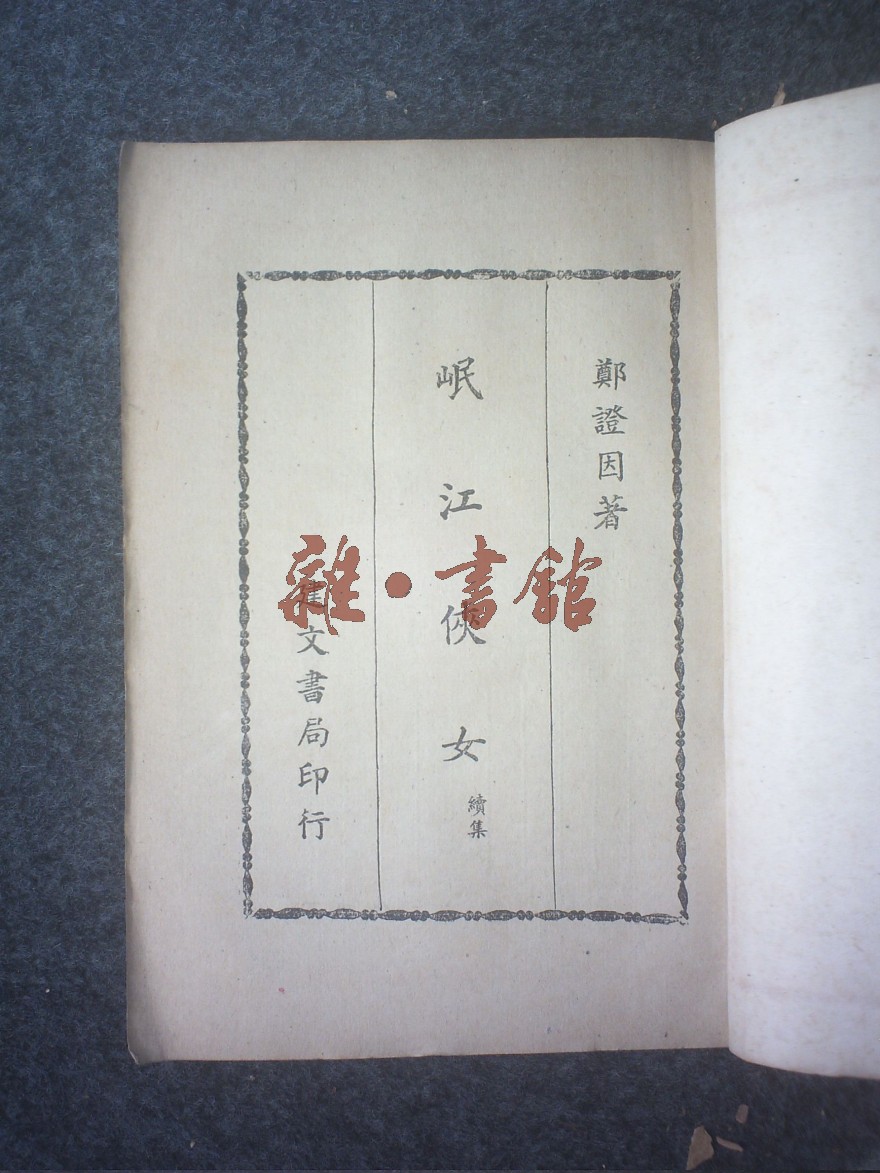 鄭證因著
岷江俠女
續集
建文書局印行
雜·書館